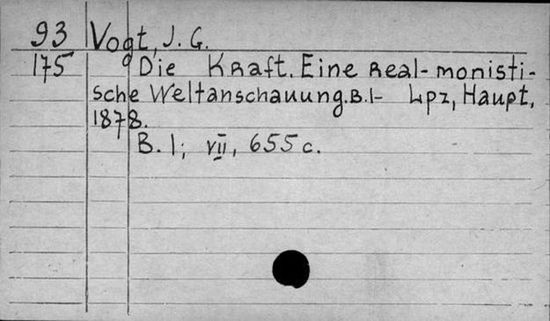 93 Vogt, J. G.
175 Die Kraft. Eine real-monisti-
sche Weltanschauung. B. I- Lpz, Haupt,
1878.
B. I; VII, 655 c.